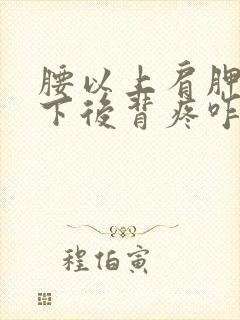 腰以上肩胛
下後背疼咋
程伯寅